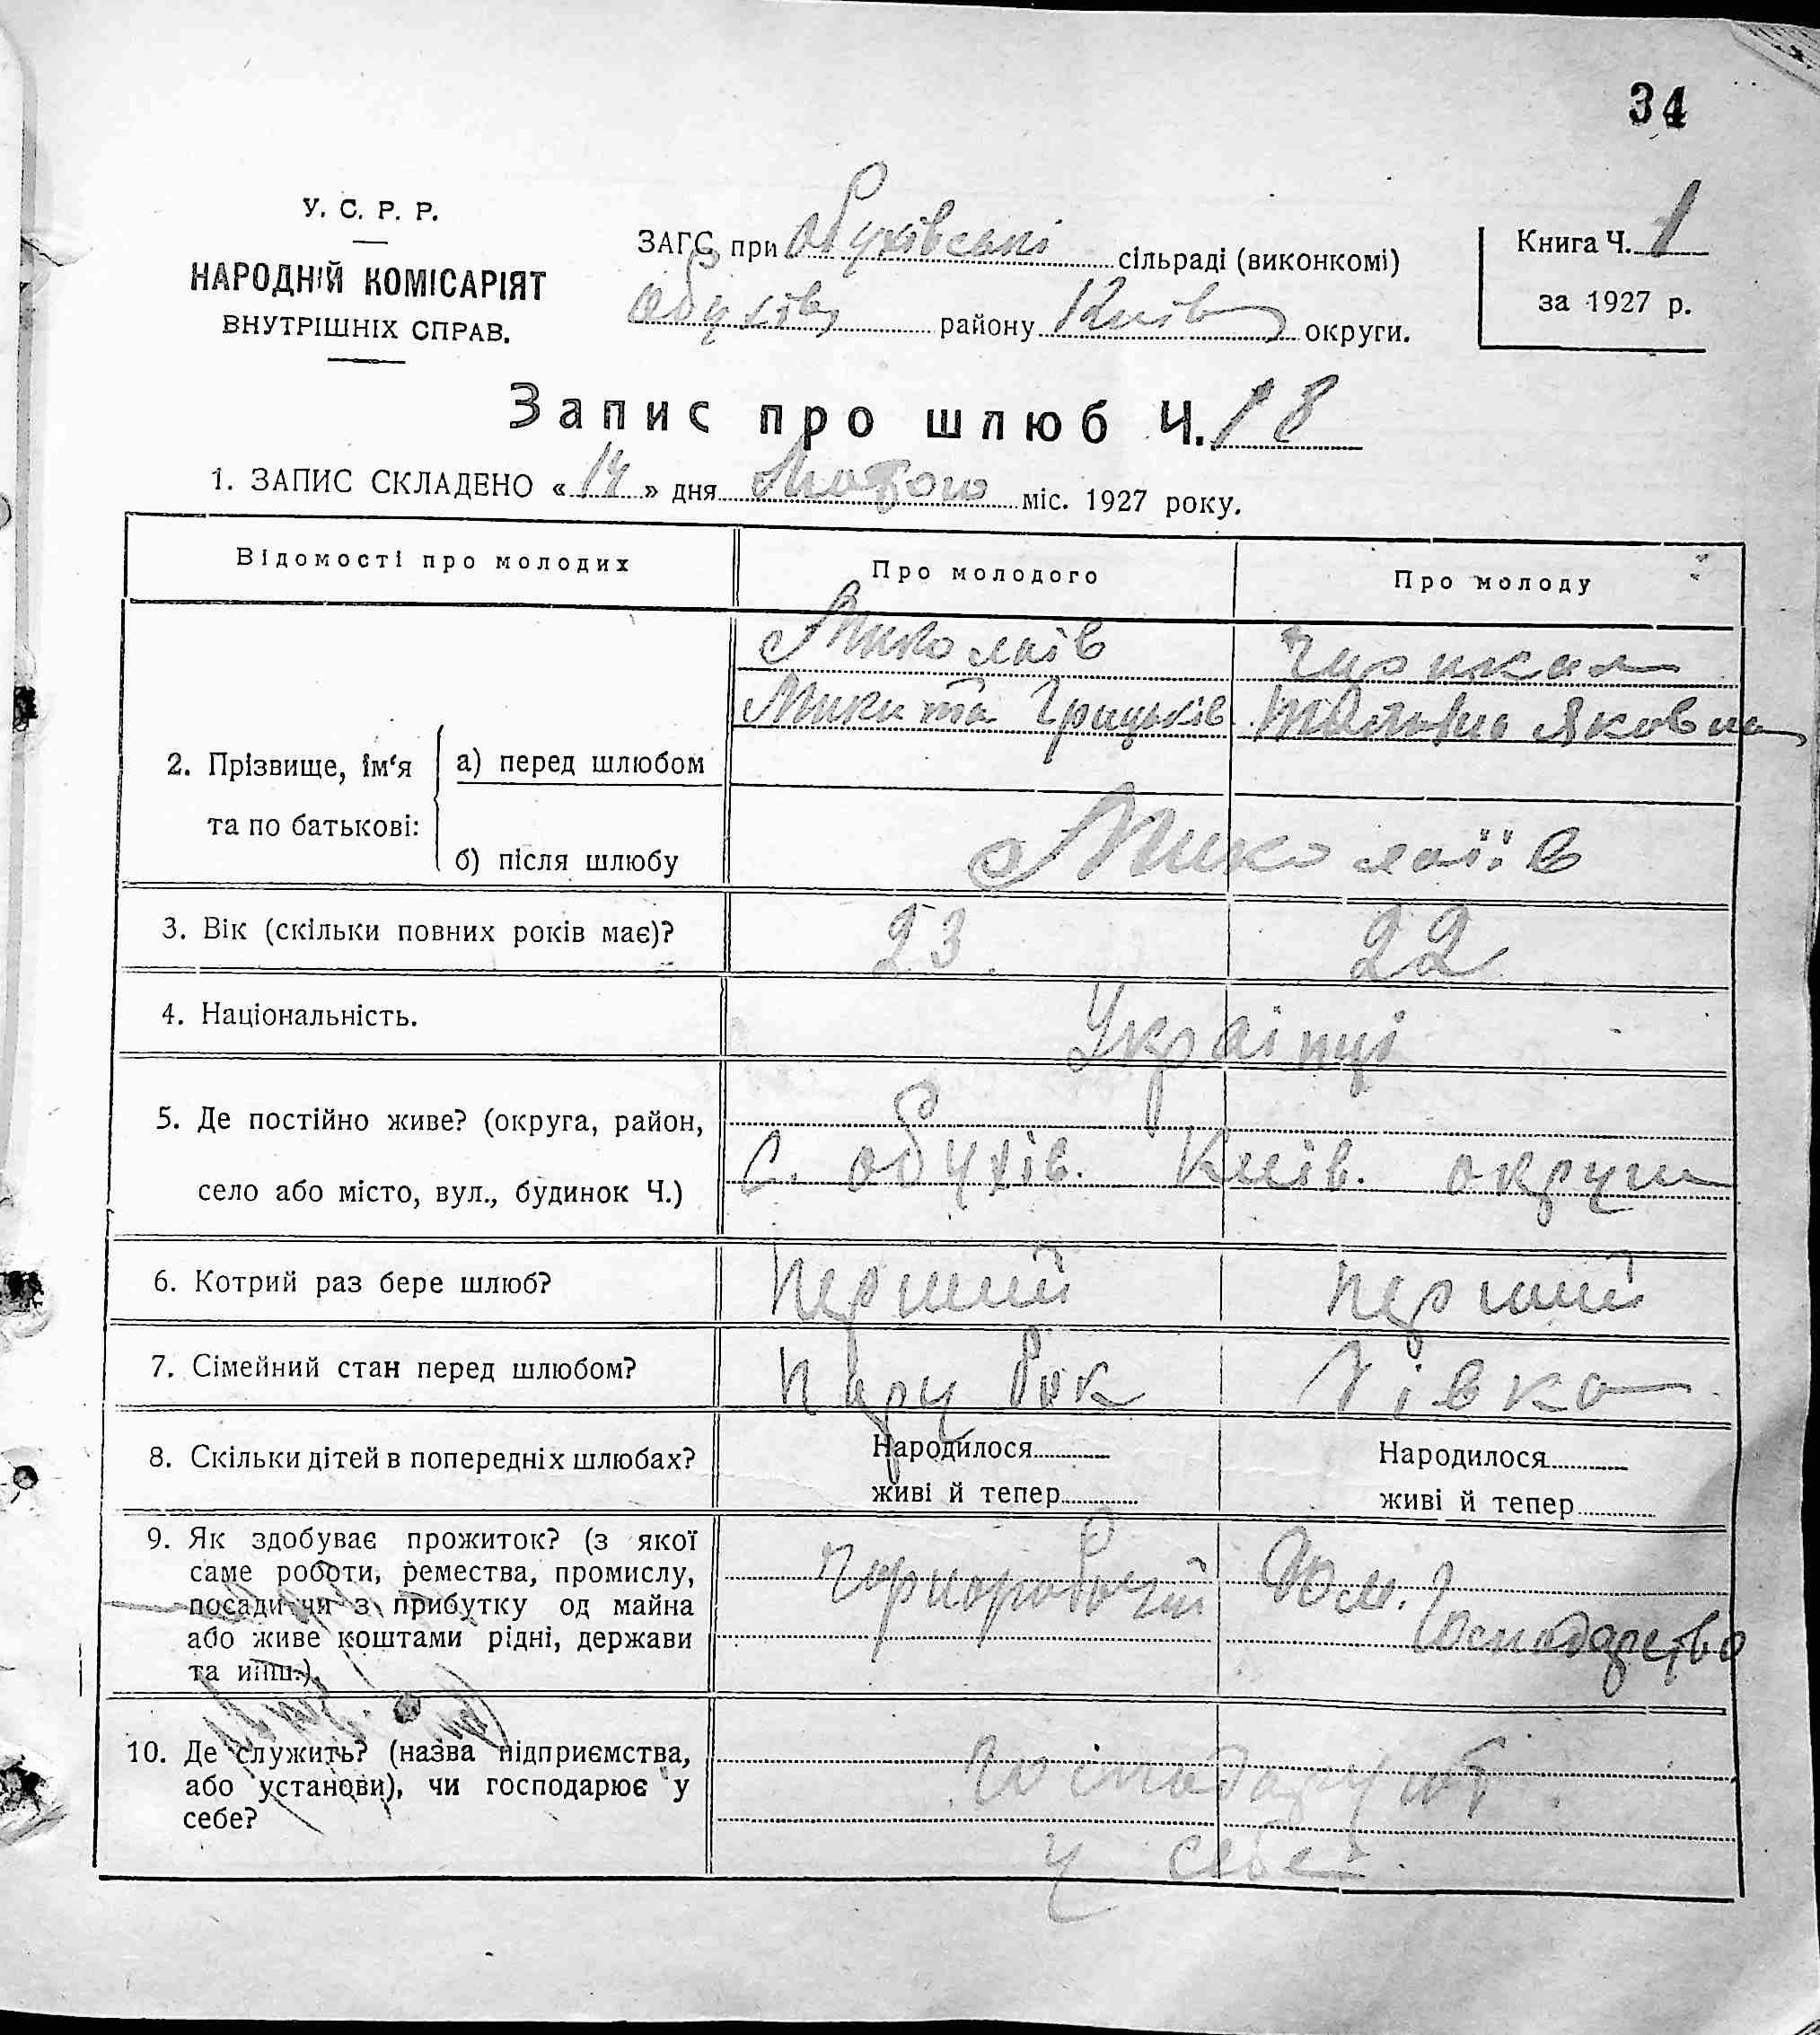 34
У. С. Р. Р.
НАРОДНІЙ КОМІСАРІЯТ
ВНУТРІШНІХ СПРАВ.
ЗАГС при Обухівські сільраді (виконкомі)
Обухів району Київ округи.
Книга Ч. 1
за 1927 р.
Запис про шлюб Ч. 18
1. ЗАПИС СКЛАДЕНО « 14 » дня Лютого міс. 1927 року.
Відомості про молодих Про молодого Про молоду
2. Прізвище, ім‘я та по батькові:
а) перед шлюбом
Миколаїв
Микита Грицьків
Яковна
б) після шлюбу
Миколаїів
3. Вік (скільки повних років має)? 23 22
4. Національність. Українці
5. Де постійно живе? (округа, район,
село або місто, вул., будинок Ч.)
С. Обухів. Київ. округи
6. Котрий раз бере шлюб? Перший перший
7. Сімейний стан перед шлюбом? Парубок Дівка
8. Скільки дітей в попередніх шлюбах? Народилося Народилося
живі й тепер живі й тепер
9. Як здобуває прожиток? (з якої
саме роботи, ремества, промислу,
посади чи з прибутку од майна
або живе коштами рідні, держави
та инш.).
Чорноробочий
Господарство
10. Де служить? (назва підприємства,
або установи), чи господарює у
себе?
Господарують
у себе